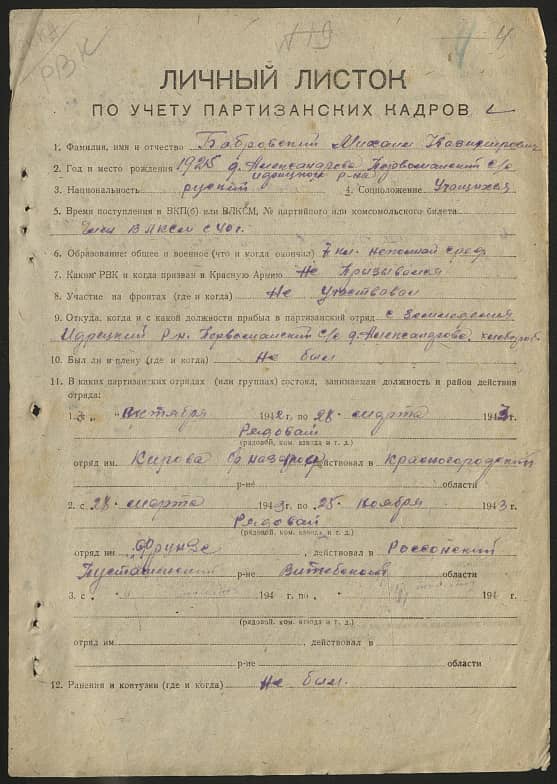 РВК
4
ЛИЧНЫЙ ЛИСТОК
ПО УЧЕТУ ПАРТИЗАНСКИХ КАДРОВ
1. Фамилия, имя и отчество Бабровский Михаил Казимирович
2. Год и место рождения 1925 д. Александрово Первомайский с/с
идрицкого р-на
3. Национальность руский 4. Соцположение Учащихся
5. Время поступления в ВКП(б) или ВЛКСМ, № партийного или комсомольского билета
Член ВЛКСМ с 40 г.
6. Образование: общее и военное (что и когда окончил) 7 кл. неполной сред
7. Каким РВК и когда призван в Красную Армию Не Призывался
8. Участие на фронтах (где и когда) Не Участвовал
9. Откуда, когда и с какой должности прибыл в партизанский отряд с
Идрецкий р-н. Первомайский с/с д. Александрово, хлебороб
10. Был ли в плену (где и когда) Не был
11. В каких партизанских отрядах (или группах) состоял, занимаемая должность и район действия
отряда:
1. с „ Октября 1942 г. по 28 марта 1943 г.
Рядовой
(рядовой, ком. взвода и т. д.)
отряд им. Кирова действовал в Красногородский
р-не области
2. с 28 марта 1943 г. по 25 Ноября 1943 г.
Рядовой
(рядовой, ком. взвода и т. д.)
отряд им Фрунзе, действовал в Россонский
р-не Витебской области
3. с „ 194 г. по „ 194 г.
(рядовой, ком. взвода и т. д.)
отряд им , действовал в
р-не области
12. Ранения и контузии (где и когда) Не был.